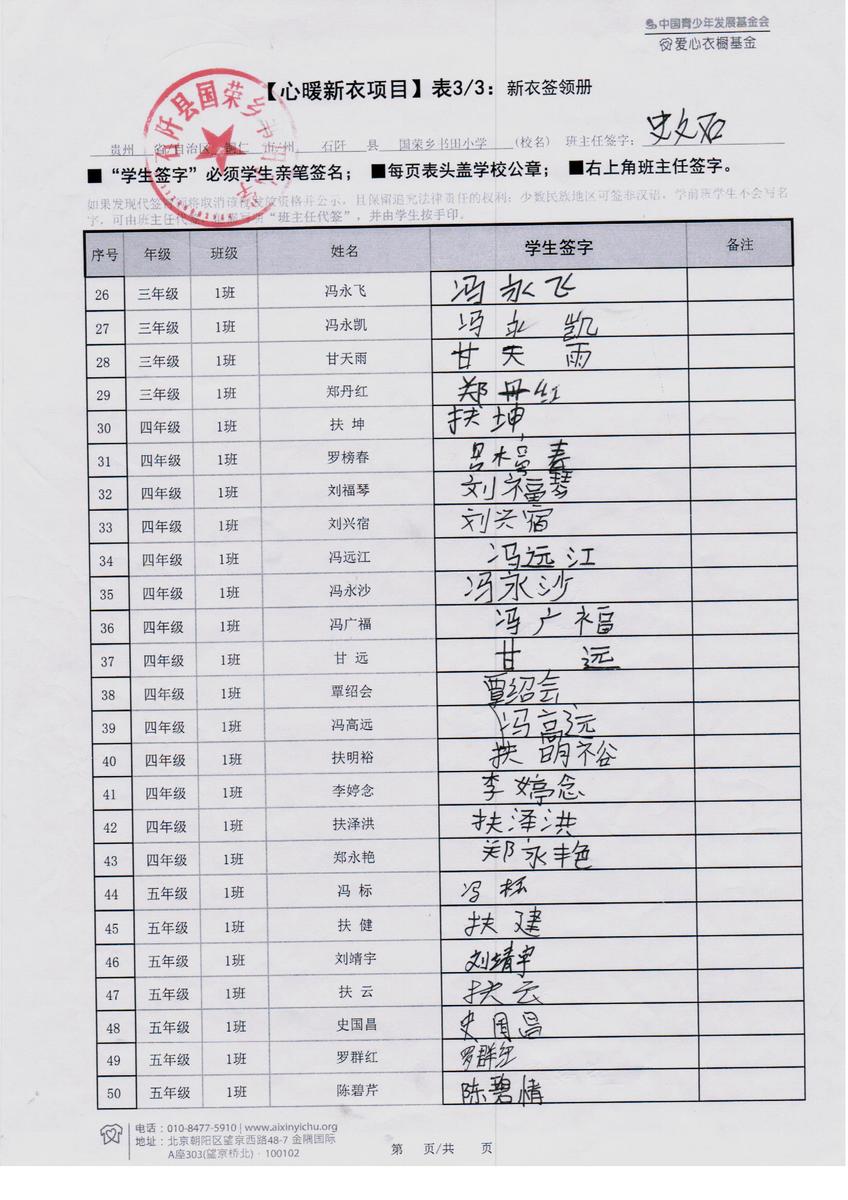 中国青少年发展基金会
爱心衣橱基金
【心暖新衣项目】表3/3：新衣签领册
贵州 省/自治区 铜仁 市/州 石阡 县 国荣乡书田小学 (校名) 班主任签字：史文石
■“学生签字”必须学生亲笔签名； ■每页表头盖学校公章； ■右上角班主任签字。
如果发现代签 将取消该 发放资格并公示，且保留追究法律责任的权利；少数民族地区可签非汉语，学前班学生不会写名
字，可由班主任代 “班主任代签”，并由学生按手印。
石阡县国荣乡书田
序号 年级 班级 姓名 学生签字 备注
26 三年级 1班 冯永飞 冯永飞
27 三年级 1班 冯永凯 冯永凯
28 三年级 1班 甘天雨 甘天雨
29 三年级 1班 郑丹红 郑丹红
30 四年级 1班 扶 坤 扶坤
31 四年级 1班 罗榜春 春
32 四年级 1班 刘福琴 刘福琴
33 四年级 1班 刘兴宿 刘兴宿
34 四年级 1班 冯远江 冯远江
35 四年级 1班 冯永沙 冯永沙
36 四年级 1班 冯广福 冯广福
37 四年级 1班 甘 远 甘 远
38 四年级 1班 覃绍会 覃绍会
39 四年级 1班 冯高远 冯高远
40 四年级 1班 扶明裕 扶明裕
41 四年级 1班 李婷念 李婷念
42 四年级 1班 扶泽洪 扶泽洪
43 四年级 1班 郑永艳 郑永艳
44 五年级 1班 冯 标 冯标
45 五年级 1班 扶 健 扶建
46 五年级 1班 刘靖宇 刘靖宇
47 五年级 1班 扶 云 扶云
48 五年级 1班 史国昌 史国昌
49 五年级 1班 罗群红 罗群红
50 五年级 1班 陈碧芹 陈碧情
电话：010-8477-5910 | www.aixinyichu.org
地址：北京朝阳区望京西路48-7 金隅国际
A座303(望京桥北)·100102
第 页/共 页